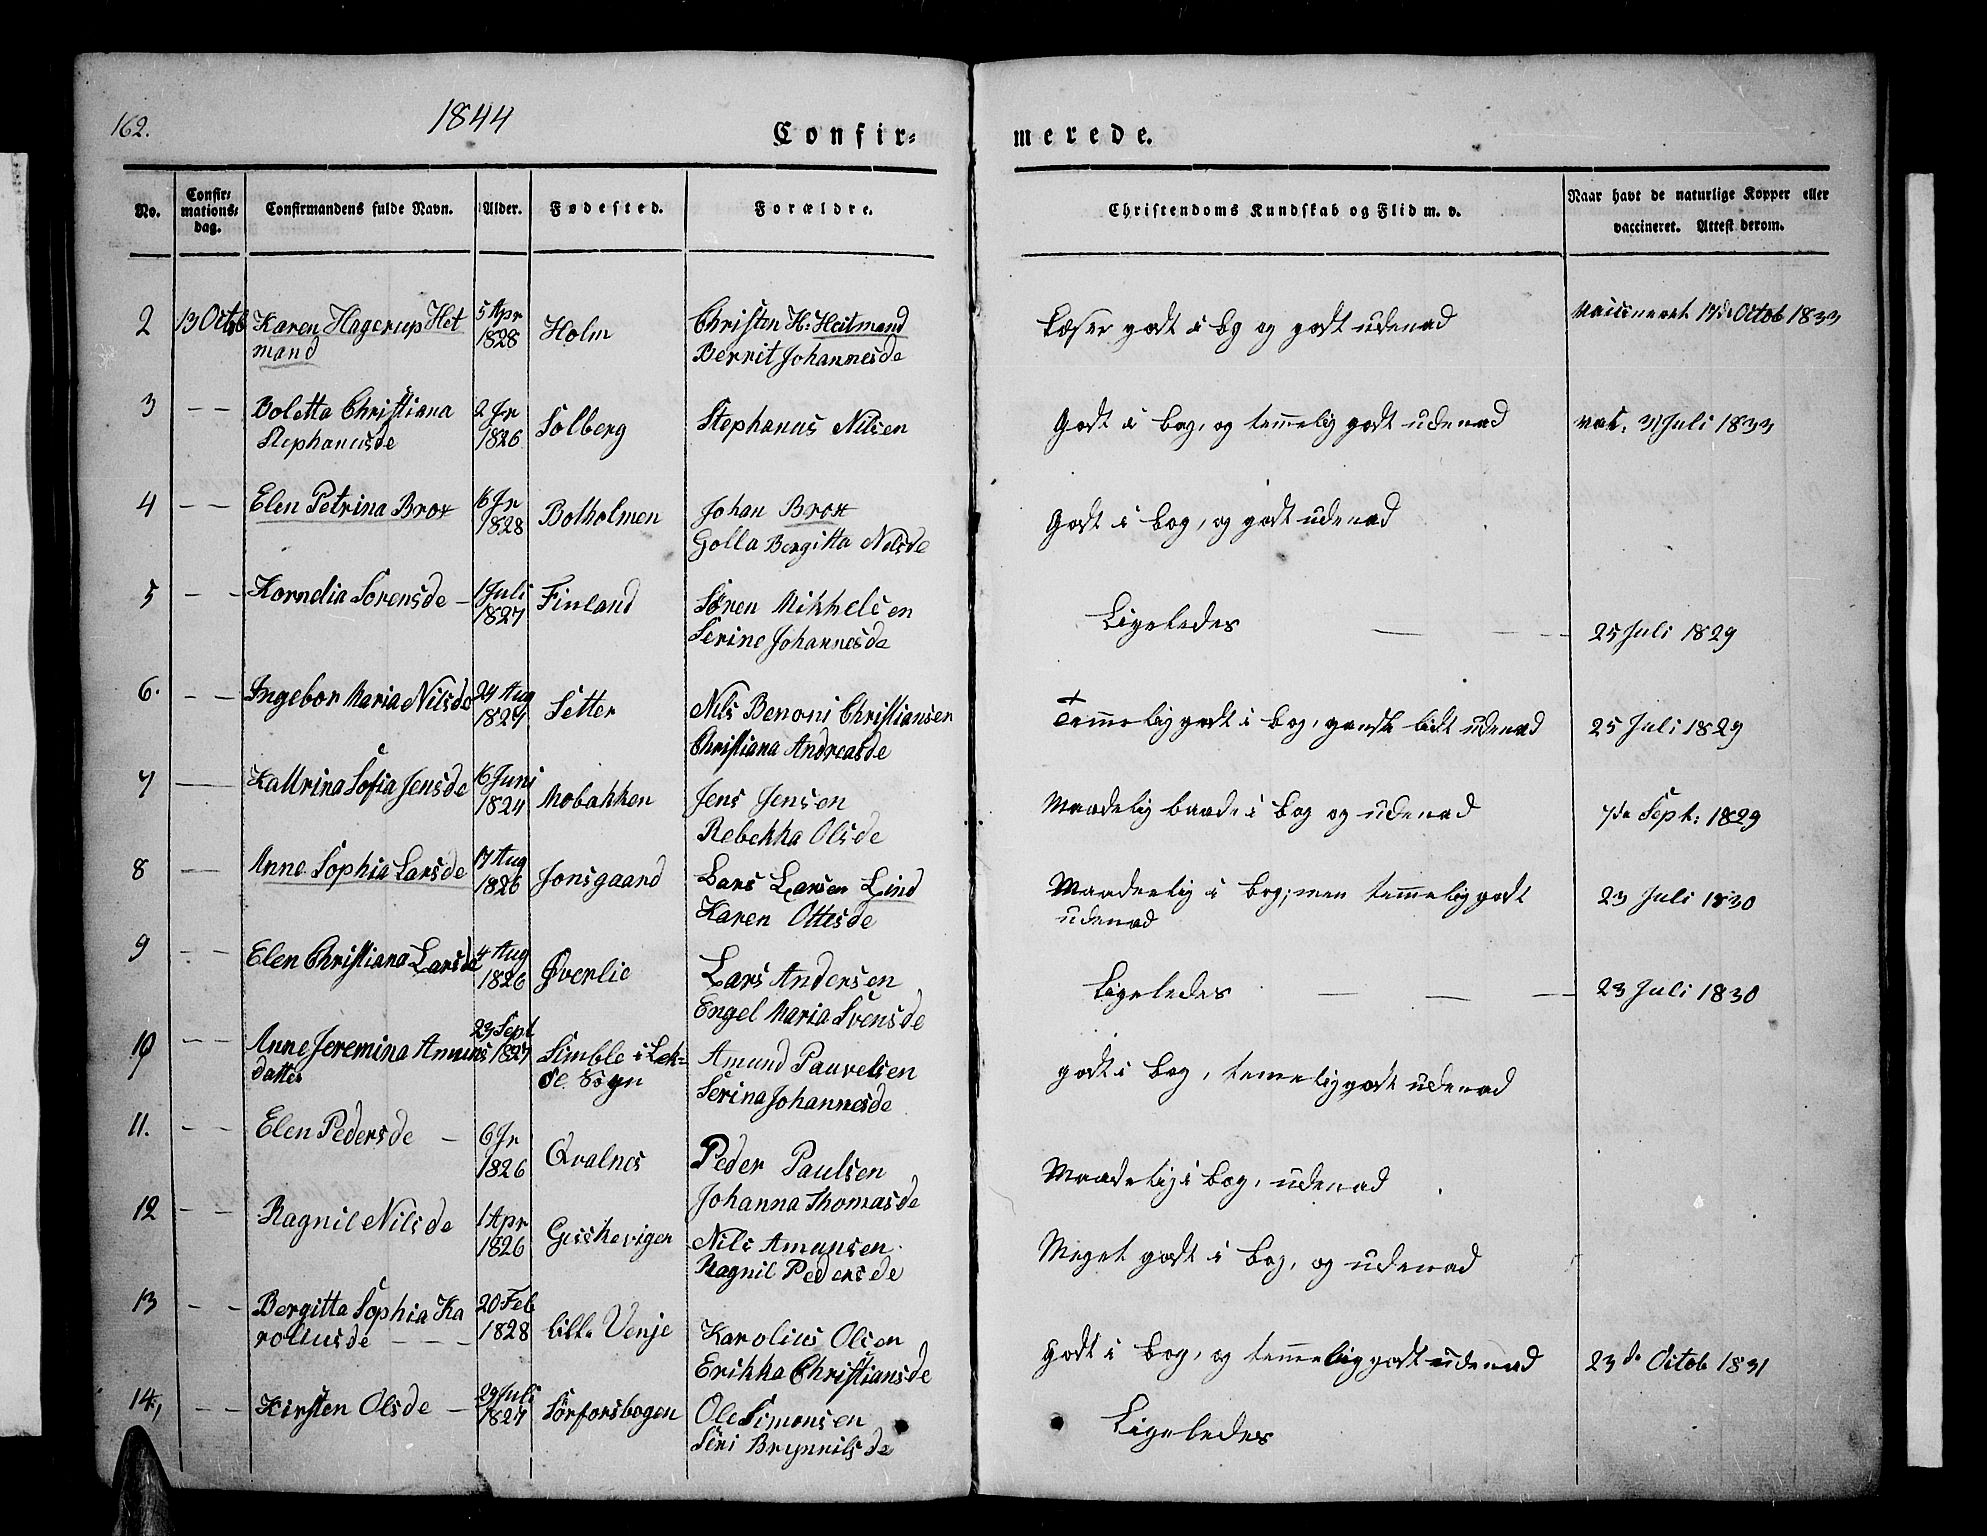 162.
1844
Confir=
merede.
No.
Confir=
mations=
dag.
Confirmandens fulde Navn.
Alder.
Fødested.
Forældre.
Christendoms Kundskab og Flid m. v.
Naar havt de naturlige Kopper eller
vaccineret. Attest derom.
2 13 Octob Karen Hagerup Het
mand
5 Apr
1828
Holm
Christen H: Heitmand
Berrit Johannesde
Læser godt i bog og godt udenad
Vaccineret 17de Octob 1833
3 — — Boletta Christiana
Stephanusde
2 Jr
1826
Solberg
Stephanus Nilsen
Godt i bog, og temmelig godt udenad
vac. 31 Juli 1833
4 — — Elen Petrina Brox
16 Jr
1828
Botholmen
Johan Brox
Golla Bergitta Nilsde
Godt i bog, og godt udenad
5 — — Kornelia Sorensde —
1 Juli
1827
Finland
Søren Mikkelsen
Serine Johannesde
Ligeledes — — —
25 Juli 1829
6. — — Ingebor Maria Nilsde
24 Aug
1827
Setter
Nils Benoni Christiansen
Christiana Andreasde
Temmelig godt i bog, ganske lidt udenad
25 Juli 1829
7 — — Kattrina Sofia Jensde
16 Juni
1824
Mobakken
Jens Jensen
Rebekka Olsde
Maadelig baade i bog og udenad
7de Sept: 1829
8 — — Anne Sophia Larsde
17 Aug
1826
Jonsgaard
Lars Larsen Lind
Karen Ottesde
Maadelig i bog, men temmelig godt
udenad
23 Juli 1830
9 — — Elen Christiana Larsde
4 Aug
1826
Øverlie
Lars Andersen
Engel Maria Svensde
Ligeledes — — —
23 Juli 1830
10 — — Anne Jeremina Amuns
datter
23 Sept
1827
Simble i Lek=
sogn
Amund Pauvelsen
Serina Johannesde
godt i bog, temmelig godt udenad
11. — — Elen Pedersde —
6 Jr
1826
Qvalnes
Peder Paulsen
Johanna Thomasde
Maadelig i bog, udenad
12 — — Ragnil Nilsde
1 Apr
1826
Gisskevigen
Nils Amunsen
Ragnil Pedersde
Meget godt i bog, og udenad
13 — — Bergitta Sophia Ka
roliusde — — —
20 Feb
1828
Lille Venje
Karolius Olsen
Erikka Christiansde
godt i bog, og temmelig godt udenad
23de Octob 1831
14, — — Kirsten Olsde —
29 Juli
1827
Sørforsbogen
Ole Simonsen
Seri Brynnilsde
Ligeledes